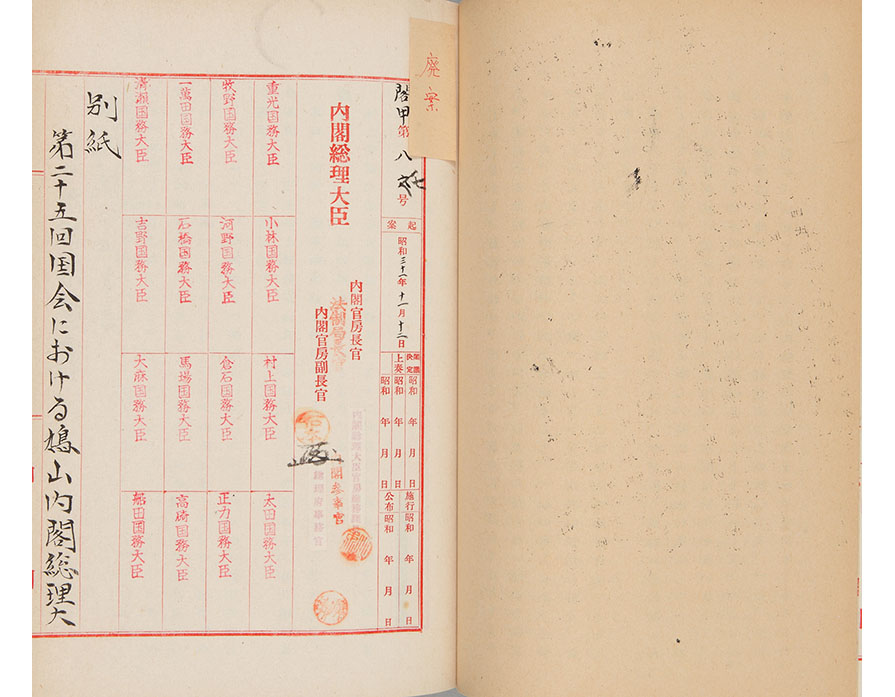 廃案
閣甲第八七号
起案
昭和三十一年十一月十二日
閣議決定
昭和 年 月 日
上奏
昭和 年 月 日
施行
昭和 年 月 日
公布
昭和 年 月 日
内閣官房長官
法制局長官
内閣官房副長官
内閣参事官
内閣総理大臣
重光国務大臣
小林国務大臣
村上国務大臣
太田国務大臣
牧野国務大臣
河野国務大臣
倉石国務大臣
正力国務大臣
一萬田国務大臣
石橋国務大臣
馬場国務大臣
高碕国務大臣
清瀬国務大臣
吉野国務大臣
大麻国務大臣
船田国務大臣
別紙
第二十五回国会における鳩山内閣総理大